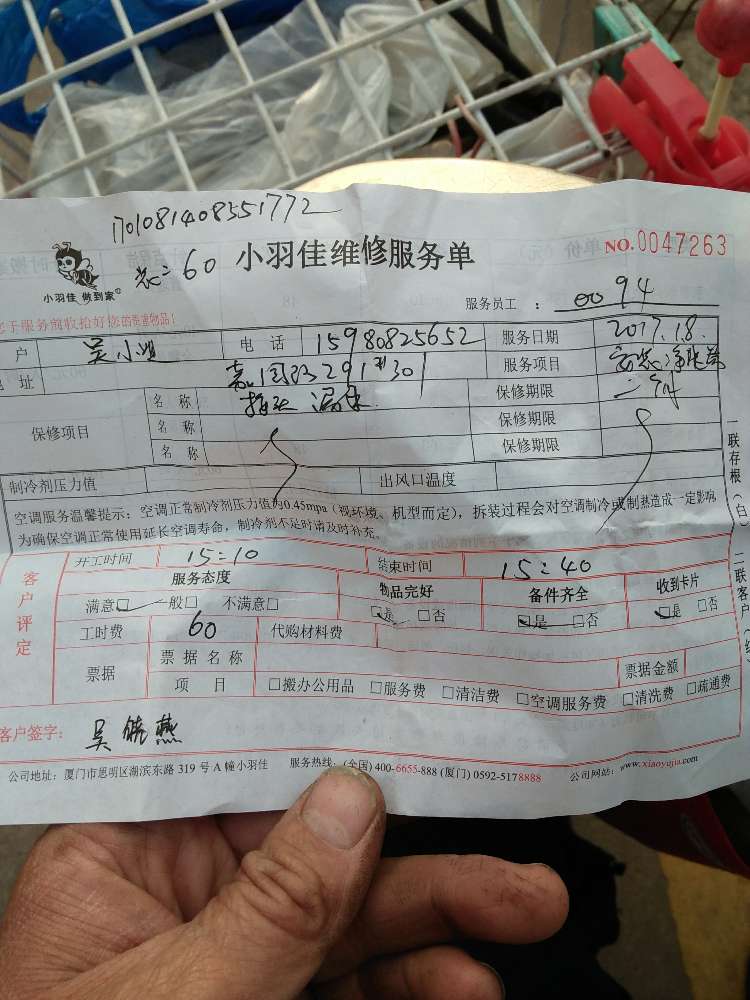 1701081408551772
60 小羽佳维修服务单 NO.0047263
小羽佳 做到家
服务员工 : 0094
于服务前收拾好您的贵重物品!
户 吴小姐 电话 15980825652 服务日期 2017.1.8.
地址 291#301 服务项目
保修项目 名称 漏水 保修期限
名称 保修期限
名称 保修期限
制冷剂压力值 出风口温度
空调服务温馨提示:空调正常制冷剂压力值约0.45mpa(视环境、机型而定),拆装过程会对空调制冷或制热造成一定影响
为确保空调正常使用延长空调寿命,制冷剂不足时请及时补充。
一联存根(白) 二联客户
客户评定
开工时间 15:10 结束时间 15:40
服务态度 物品完好 备件齐全 收到卡片
满意□ 一般□ 不满意□ □是 □否 □是 □否 □是 □否
工时费 60 代购材料费
票据 票据名称 票据金额
项目 □搬办公用品 □服务费 □清洁费 □空调服务费 □清洗费 □疏通费
客户签字: 吴 燕
公司地址:厦门市思明区湖滨东路 319 号 A 幢小羽佳 服务热线:(全国) 400-6655-888 (厦门) 0592-5178888 公司网站:www.xiaoyujia.com